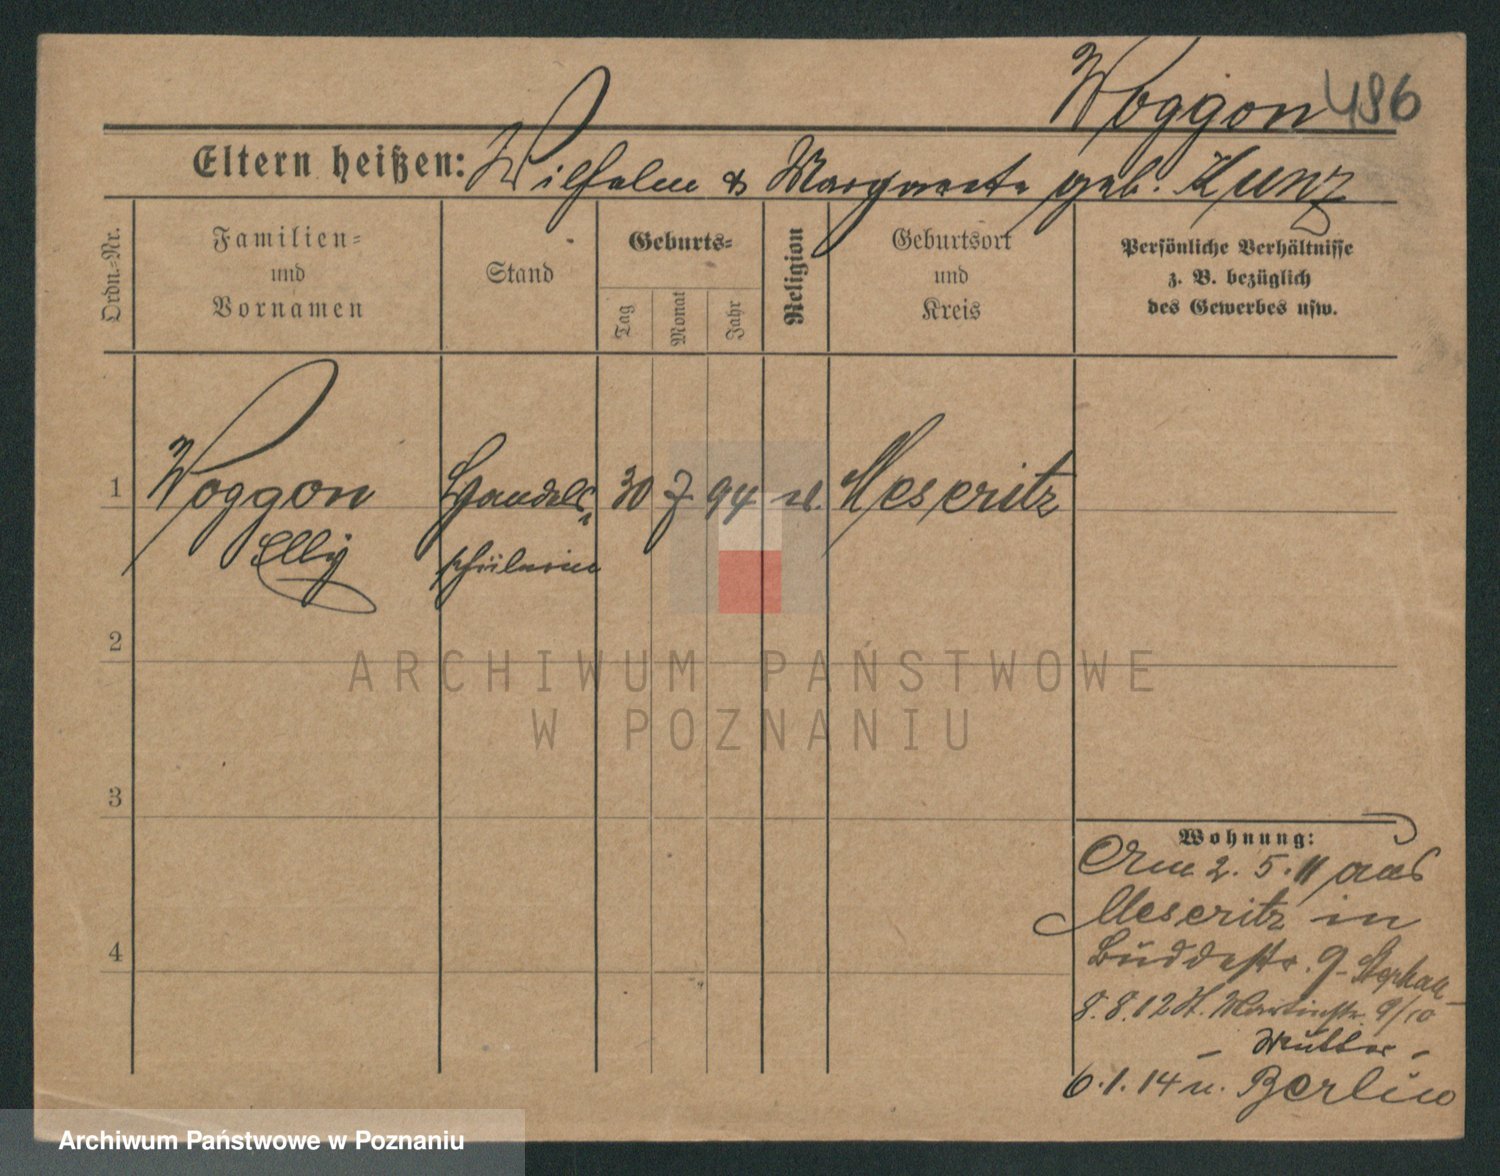 Woggon 486
Eltern heißen: Wilhelm & Margarete geb. Kunz
Ordn.-Nr.
Familien-
und
Vornamen
Stand
Geburts-
Tag
Monat
Jahr
Religion
Geburtsort
und
Kreis
Persönliche Verhältnisse
z. B. bezüglich
des Gewerbes usw.
1 Woggon Handels- 30 7 94 ev. Meseritz
Elly schülerin
2
ARCHIWUM PAŃSTWOWE
W POZNANIU
3
4
Wohnung:
Am 2. 5. 11 aus
Meseritz in
Buddestr. 9
8. 8. 12 St. Martinstr. 9/10
- Mutter -
6. 1. 14 n. Berlin
Archiwum Państwowe w Poznaniu